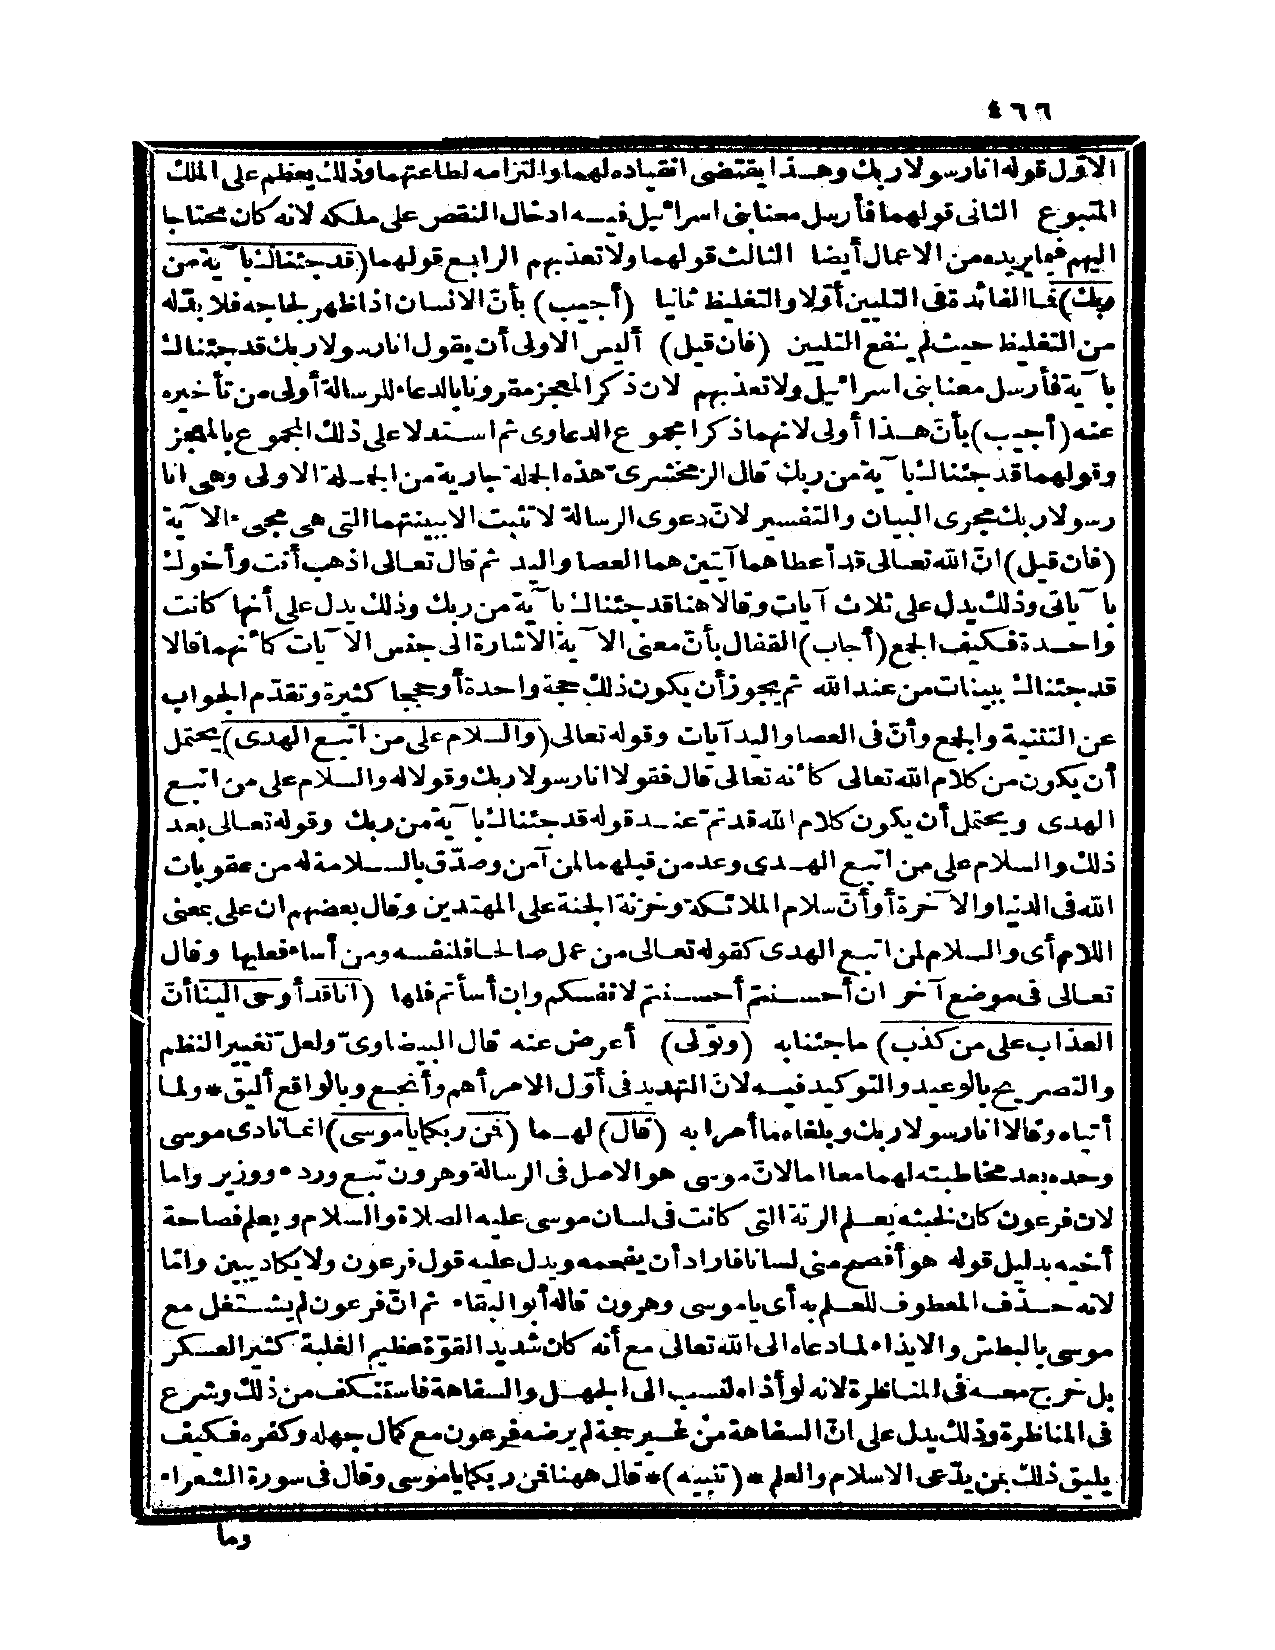 ٤٦٦
الاوّل قوله انا رسولا ربك وهذا يقتضى انقياده لهما والتزامه لطاعتهما وذلك يعظم على الملك
المتبوع الثانى قولهما فأرسل معنا بنى اسرائيل فيه ادخال النقص على ملكه لانه كان محتاجا
اليهم فيما يريده من الاعمال أيضا الثالث قولهما ولا تعذبهم الرابع قولهما (قد جئناك بآية من
ربك) فما الفائدة فى التليين أوّلا والتغليظ ثانيا (أجيب) بأنّ الانسان اذا ظهر لجاجه فلا بدّ له
من التغليظ حيث لم ينفع التليين (فان قيل) أليس الاولى أن يقول انا رسولا ربك قد جئناك
بآية فأرسل معنا بنى اسرائيل ولا تعذبهم لان ذكر المعجز مقرونا بالدعاء للرسالة أولى من تأخيره
عنه (أجيب) بأنّ هذا أولى لانهما ذكرا مجموع الدعاوى ثم استدلا على ذلك المجموع بالمعجز
وقولهما قد جئناك بآية من ربك قال الزمخشرىّ هذه الجملة جارية من الجملة الاولى وهى انا
رسولا ربك مجرى البيان والتفسير لانّ دعوى الرسالة لا تثبت الا ببينتهما التى هى مجىء الآية
(فان قيل) انّ الله تعالى قد أعطاهما آيتين هما العصا واليد ثم قال تعالى اذهب أنت وأخوك
بآياتى وذلك يدل على ثلاث آيات وقالا هنا قد جئناك بآية من ربك وذلك يدل على أنها كانت
واحدة فكيف الجمع (أجاب) القفال بأنّ معنى الآية الاشارة الى جنس الآيات كأنهما قالا
قد جئناك ببينات من عند الله ثم يجوز أن يكون ذلك حجة واحدة أو حججا كثيرة وتقدّم الجواب
عن التثنية والجمع وأنّ فى العصا واليد آيات وقوله تعالى (والسلام على من اتبع الهدى) يحتمل
أن يكون من كلام الله تعالى كأنه تعالى قال فقولا انا رسولا ربك وقولا له والسلام على من اتبع
الهدى ويحتمل أن يكون كلام الله قد تمّ عند قوله قد جئناك بآية من ربك وقوله تعالى بعد
ذلك والسلام على من اتبع الهدى وعد من قبلهما لمن آمن وصدّق بالسلامة له من عقوبات
الله فى الدنيا والآخرة أو أنّ سلام الملائكة وخزنة الجنة على المهتدين وقال بعضهم ان على بمعنى
اللام أى والسلام لمن اتبع الهدى كقوله تعالى من عمل صالحا فلنفسه ومن أساء فعليها وقال
تعالى فى موضع آخر ان أحسنتم أحسنتم لانفسكم وان أسأتم فلها (انا قد أوحى الينا أنّ
العذاب على من كذب) ما جئنا به (وتولى) أعرض عنه قال البيضاوىّ ولعلّ تغيير النظم
والتصريح بالوعيد والتوكيد فيه لانّ التهديد فى أوّل الامر أهم وأنجع وبالواقع أليق * ولما
أتياه وقالا انا رسولا ربك وبلغاه ما أمرا به (قال) لهما (فمن ربكما يا موسى) انما نادى موسى
وحده بعد مخاطبته لهما معا اما لانّ موسى هو الاصل فى الرسالة وهرون تبع وردء ووزير واما
لان فرعون كان لخبثه يعلم الرتة التى كانت فى لسان موسى عليه الصلاة والسلام ويعلم فصاحة
أخيه بدليل قوله هو أفصح منى لسانا فاراد أن يفحمه ويدل عليه قول فرعون ولا يكاد يبين وامّا
لانه حذف المعطوف للعلم به أى يا موسى وهرون قاله أبو البقاء ثم انّ فرعون لم يشتغل مع
موسى بالبطش والايذاء لما دعاه الى الله تعالى مع أنه كان شديد القوّة عظيم الغلبة كثير العسكر
بل خرج معه فى المناظرة لانه لو أذاه لنسب الى الجهل والسفاهة فاستنكف من ذلك وشرع
فى المناظرة وذلك يدل على انّ السفاهة من غير حجة لم يرضه فرعون مع كمال جهله وكفره فكيف
يليق ذلك بمن يدّعى الاسلام والعلم * (تنبيه) * قال ههنا فمن ربكما يا موسى وقال فى سورة الشعراء
وما